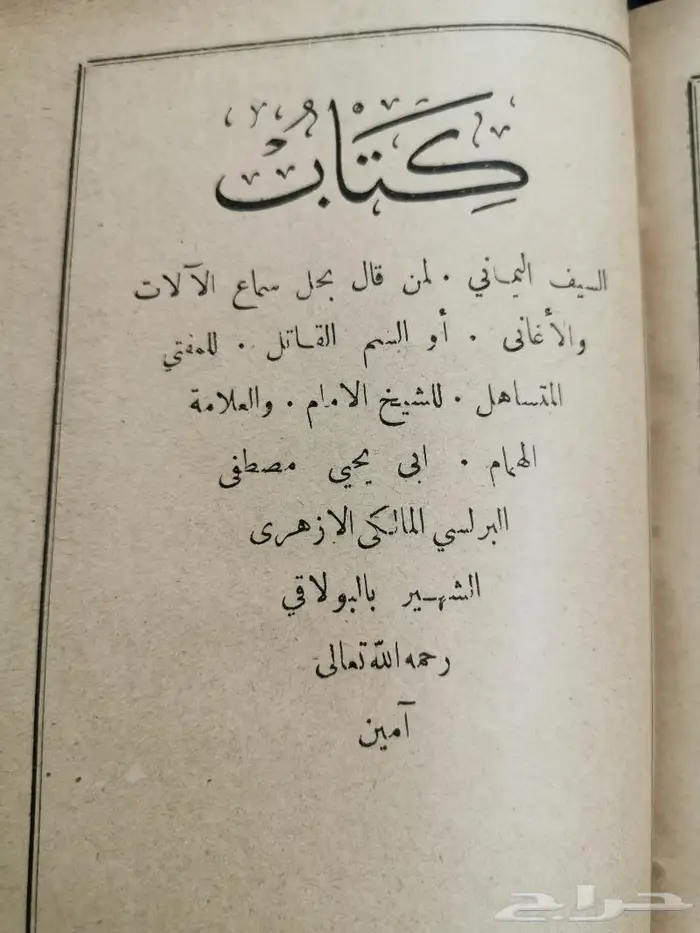 كِتَابُ
السيف اليماني . لمن قال بحل سماع الآلات
والأغانى . أو السم القاتل . للمفتي
المتساهل . للشيخ الامام . والعلامة
الهمام . ابى يحيي مصطفى
البرلسي المالكى الازهرى
الشهير بالبولاقي
رحمه الله تعالى
آمين
حراج